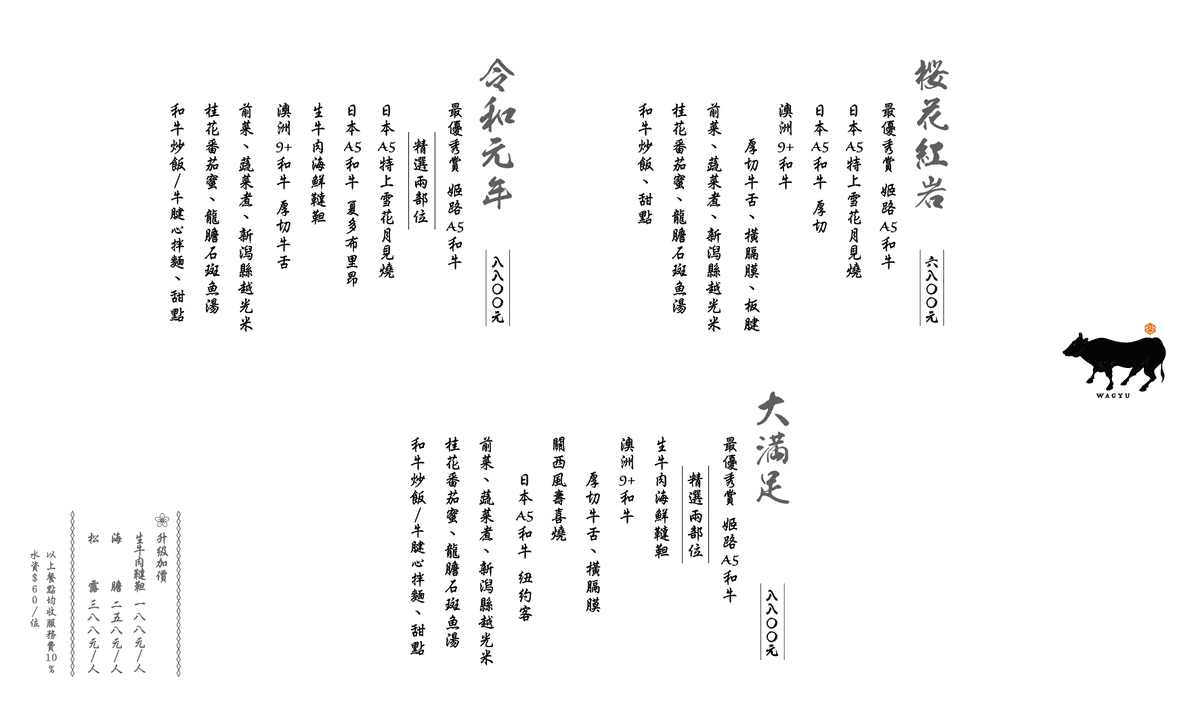 櫻花紅岩
六八〇〇元
最優秀賞 姬路A5和牛
日本A5特上雪花月見燒
日本A5和牛 厚切
澳洲9+和牛
厚切牛舌、橫膈膜、板腱
前菜、蔬菜煮、新潟縣越光米
桂花番茄蜜、龍膽石斑魚湯
和牛炒飯、甜點
令和元年
八八〇〇元
最優秀賞 姬路A5和牛
精選兩部位
日本A5特上雪花月見燒
日本A5和牛 夏多布里昂
生牛肉海鮮韃靼
澳洲9+和牛 厚切牛舌
前菜、蔬菜煮、新潟縣越光米
桂花番茄蜜、龍膽石斑魚湯
和牛炒飯/牛腱心拌麵、甜點
WAGYU
大滿足
八八〇〇元
最優秀賞 姬路A5和牛
精選兩部位
生牛肉海鮮韃靼
澳洲9+和牛
厚切牛舌、橫膈膜
關西風壽喜燒
日本A5和牛 紐約客
前菜、蔬菜煮、新潟縣越光米
桂花番茄蜜、龍膽石斑魚湯
和牛炒飯/牛腱心拌麵、甜點
升級加價
生牛肉韃靼 一八八元/人
海膽 二五八元/人
松露 三八八元/人
以上餐點均收服務費10%
水資$60/位